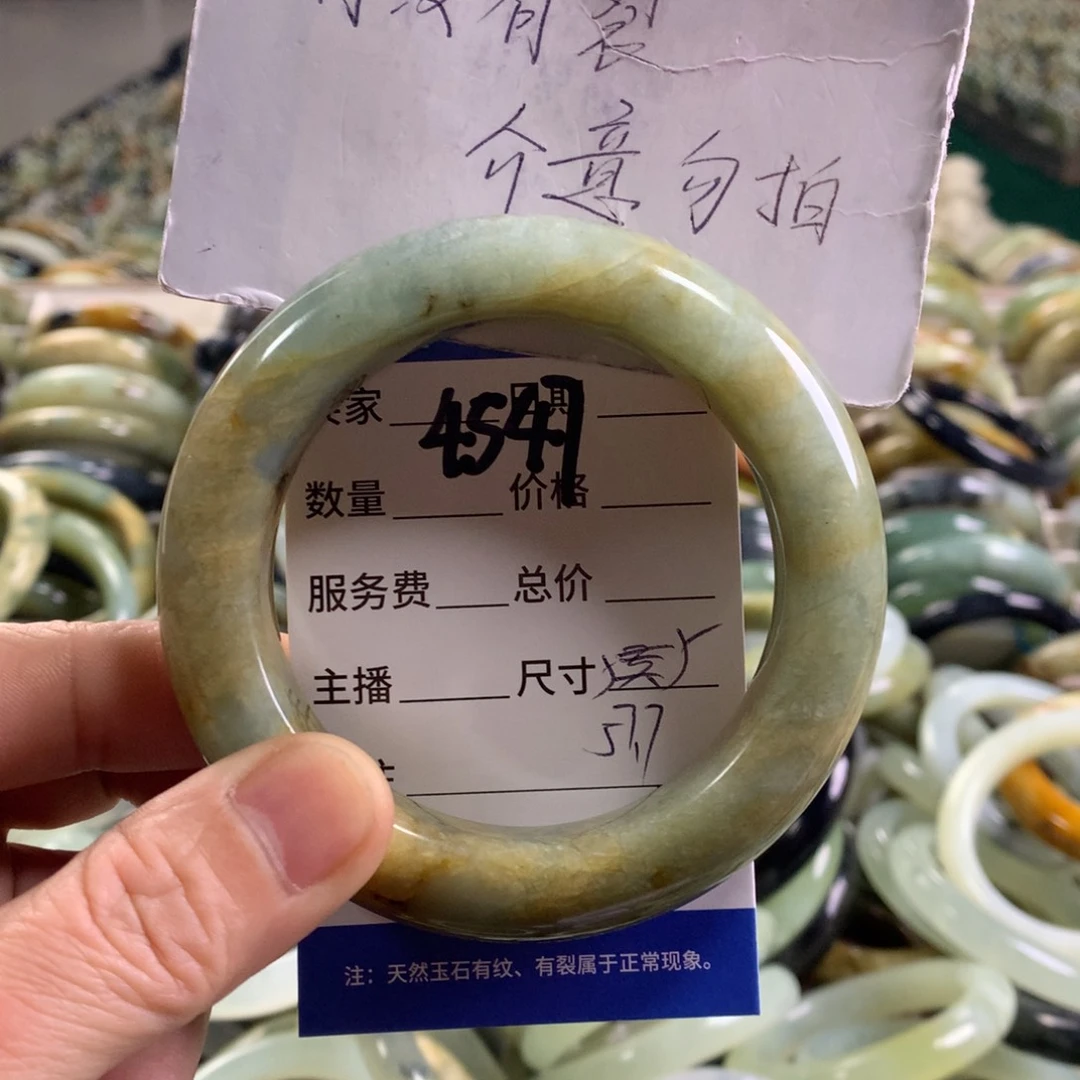 有裂
介意勿拍
家 4547
数量 价格
服务费 总价
主播 尺寸
57.7
注：天然玉石有纹、有裂属于正常现象。